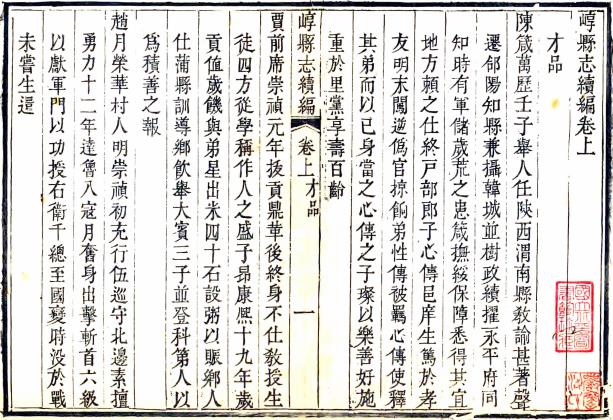 崞縣志續編卷上
才品
陳箴萬歷壬子舉人任陝西渭南縣教諭甚著聲
遷郃陽知縣兼攝韓城並樹政績擢永平府同
知時有軍儲歲荒之患箴撫綏保障悉得其宜
地方賴之仕終戸部郎子心傳邑庠生篤於孝
友明末闖逆偽官掠餉弟性傳被羈心傳使釋
其弟而以已身當之心傳之子璨以樂善好施
重於里黨享壽百齡
崞縣志續編 卷上才品 一
賈前席崇禎元年拔貢鼎華後終身不仕敎授生
徒四方從學稱作人之盛子昻康熙十九年歲
貢値歲饑與弟星出米四十石設粥以賑鄉人
仕蒲縣訓導鄉飲舉大賓三子並登科第人以
為積善之報
趙月榮華村人明崇禎初充行伍巡守北邊素擅
勇力十二年達魯八寇月奮身出擊斬首六級
以獻軍門以功授右衛千總至國變時没於戰
未嘗生還